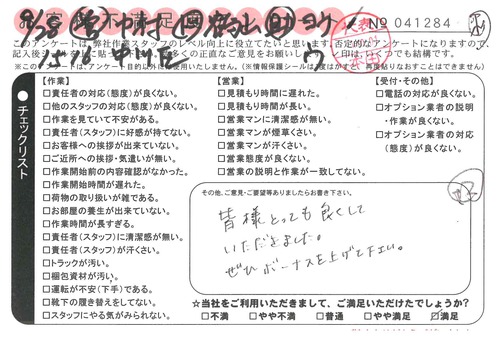 No 041284
このアンケートは、弊社作業スタッフのレベル向上に役立てたいと思います。否定的なアンケートになりますので、
【作業】
□責任者の対応(態度)が良くない。
□他のスタッフの対応(態度)が良くない。
□作業を見ていて不安がある。
□責任者(スタッフ)に好感が持てない。
□お客様への挨拶が出来ていない。
□ご近所への挨拶・気遣いが無い。
□作業開始前の内容確認がなかった。
□作業開始時間が遅れた。
□荷物の取り扱いが雑である。
□お部屋の養生が出来ていない。
□作業時間が長すぎる。
□責任者(スタッフ)に清潔感が無い。
□責任者(スタッフ)が汗くさい。
□トラックが汚い。
□梱包資材が汚い。
□運転が不安(下手)である。
□靴下の履き替えをしてない。
□スタッフにやる気がみられない。
【営業】
□見積もり時間に遅れた。
□見積もり時間が長い。
□営業マンに清潔感が無い。
□営業マンが煙草くさい。
□営業マンが汗くさい。
□営業態度が良くない。
□営業の説明と作業が一致してない。
【受付・その他】
□電話の対応が良くない。
□オプション業者の説明
・作業が良くない。
□オプション業者の対応
(態度)が良くない。
●チェックリスト
その他、ご意見・ご要望等ありましたらお書き下さい。
皆様とっても良くして
いただきました。
ぜひボーナスを上げて下さい。
☆当社をご利用いただきまして、ご満足いただけたでしょうか?
□不満 □やや不満 □普通 □やや満足 ☑満足